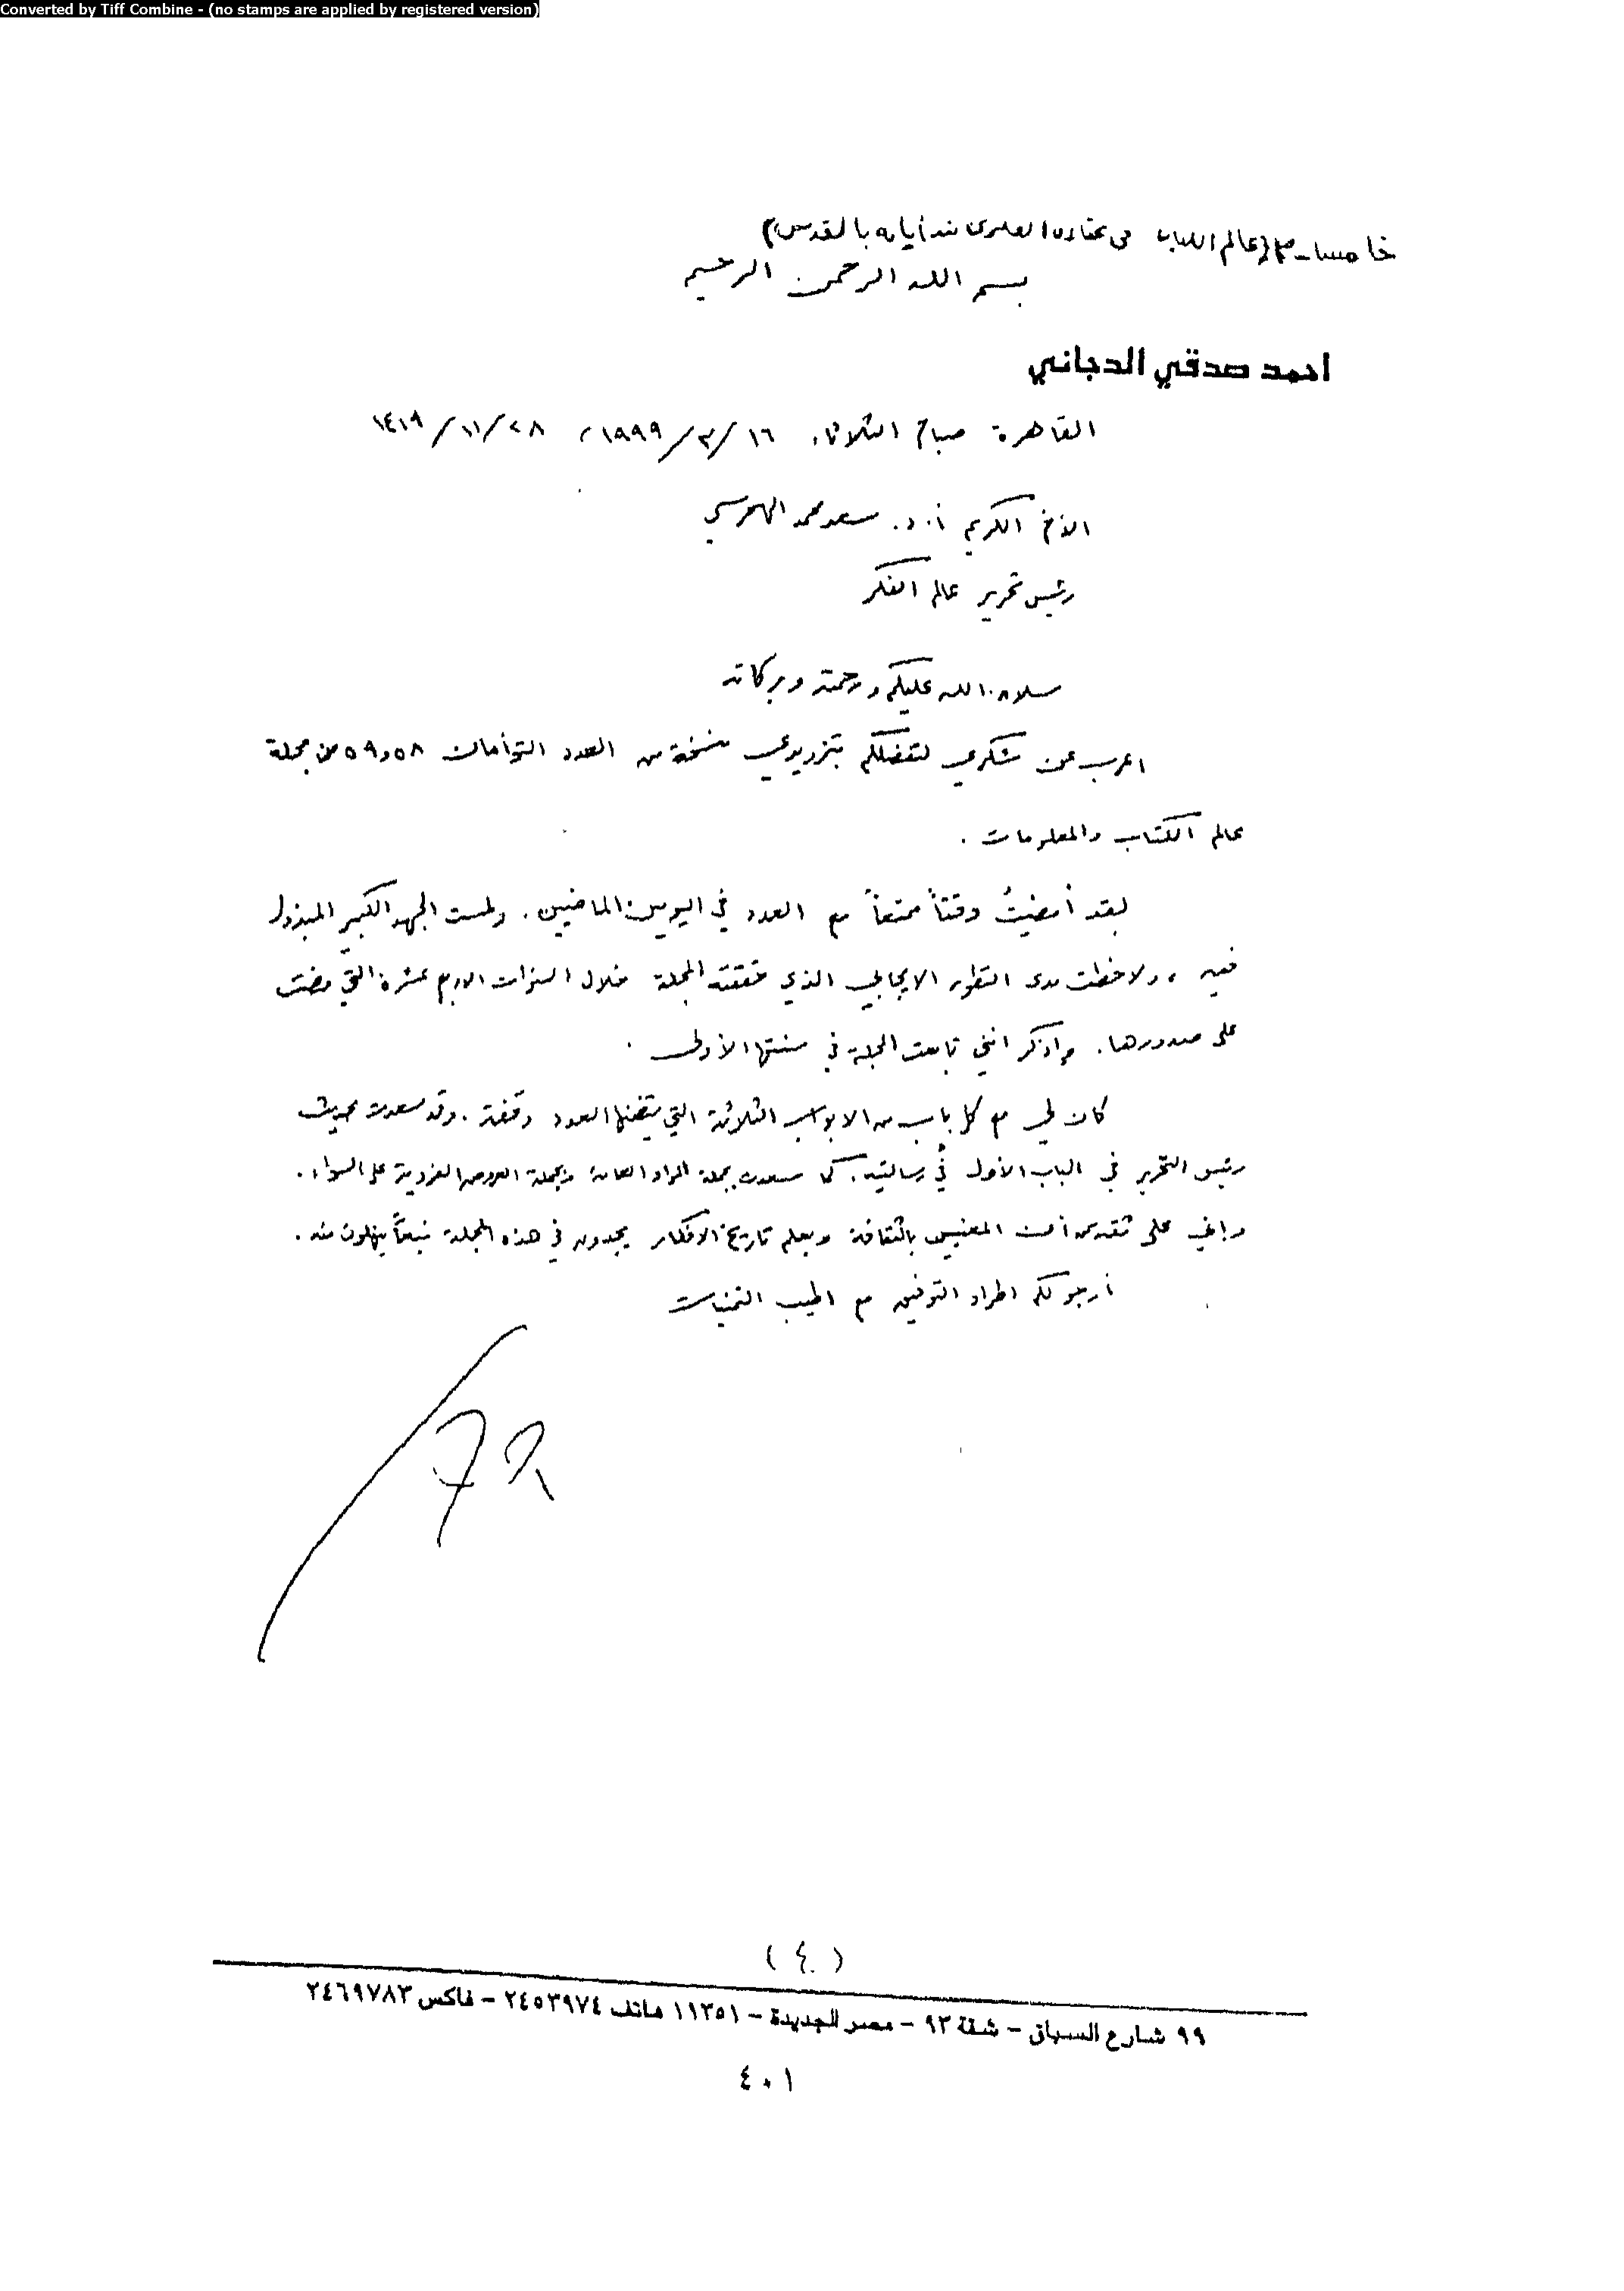 Converted by Tiff Combine - (no stamps are applied by registered version)
خامسا - ٣ (عالم الكتاب في عقده العشري بالقدس)
بسم الله الرحمن الرحيم
احمد صدقي الدجاني
القاهرة صباح الثلاثاء ١٦/٣/١٩٩٩، ٢٨/١١/١٤١٩
الأخ الكريم أ.د. سعد محمد الهجرسي
رئيس تحرير عالم الفكر
سلام الله عليكم ورحمته وبركاته
اعرب عن شكري لتفضلكم بتزويدي بنسخة من العدد التوأمان ٥٨ و ٥٩ من مجلة
عالم الكتاب والمعلومات .
لقد أمضيتُ وقتاً ممتعاً مع العدد في اليومين الماضيين . ولمست الجهد الكبير المبذول
فيه ، ولاحظت مدى التطور الايجابي الذي حققته المجلة خلال السنوات الاربع عشرة التي مضت
على صدورها . وأذكر انني تابعت المجلة في سنتها الأولى .
كان لي مع كل باب من الابواب الثلاثة التي يتضمنها العدد وقفة . وقد سعدت بحديث
رئيس التحرير في الباب الأول في رسالتيه . كما سعدت بجملة المواد العامة وبجملة العروض الفردية على السواء .
واني على ثقة من أن المعنيين بالثقافة وبعلم تاريخ الافكار يجدون في هذه المجلة نبعاً ينهلون منه .
أرجو لكم اطراد التوفيق مع اطيب التمنيات
(٤٠)
٩٩ شارع السباق - شقة ٩٣ - مصر الجديدة - ١١٣٥١ هاتف ٢٤٥٣٩٧٤ - فاكس ٢٤٦٩٧٨٣
٤٠١